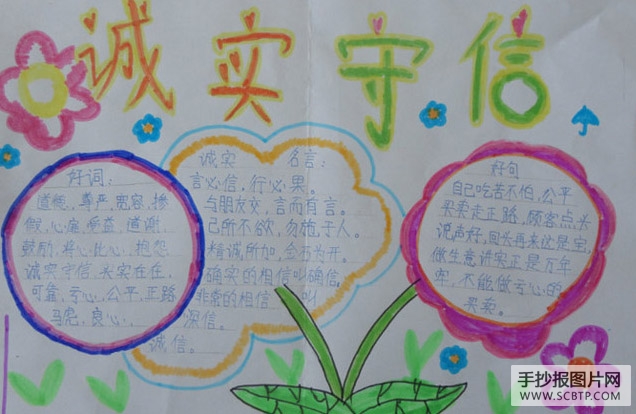 诚实守信
好词:
道德,尊严,宽容,掺
假,心虚,受益,道谢
鼓励,将心比心,抱怨
诚实守信,实实在在,
可靠,亏心,公平,正路
马虎,良心,
诚实 名言:
言必信,行必果。
与朋友交,言而有言。
己所不欲,勿施于人。
精诚所加,金石为开。
确实的相信叫确信,
非常的相信 叫
深信。
诚信。
好句
自己吃苦不怕,公平
买卖走正路,顾客点头
说声好,回头再来这是宝,
做生意讲实正是万年
牢,不能做亏心的
买卖。
手抄报图片网
WWW.SCBTP.COM